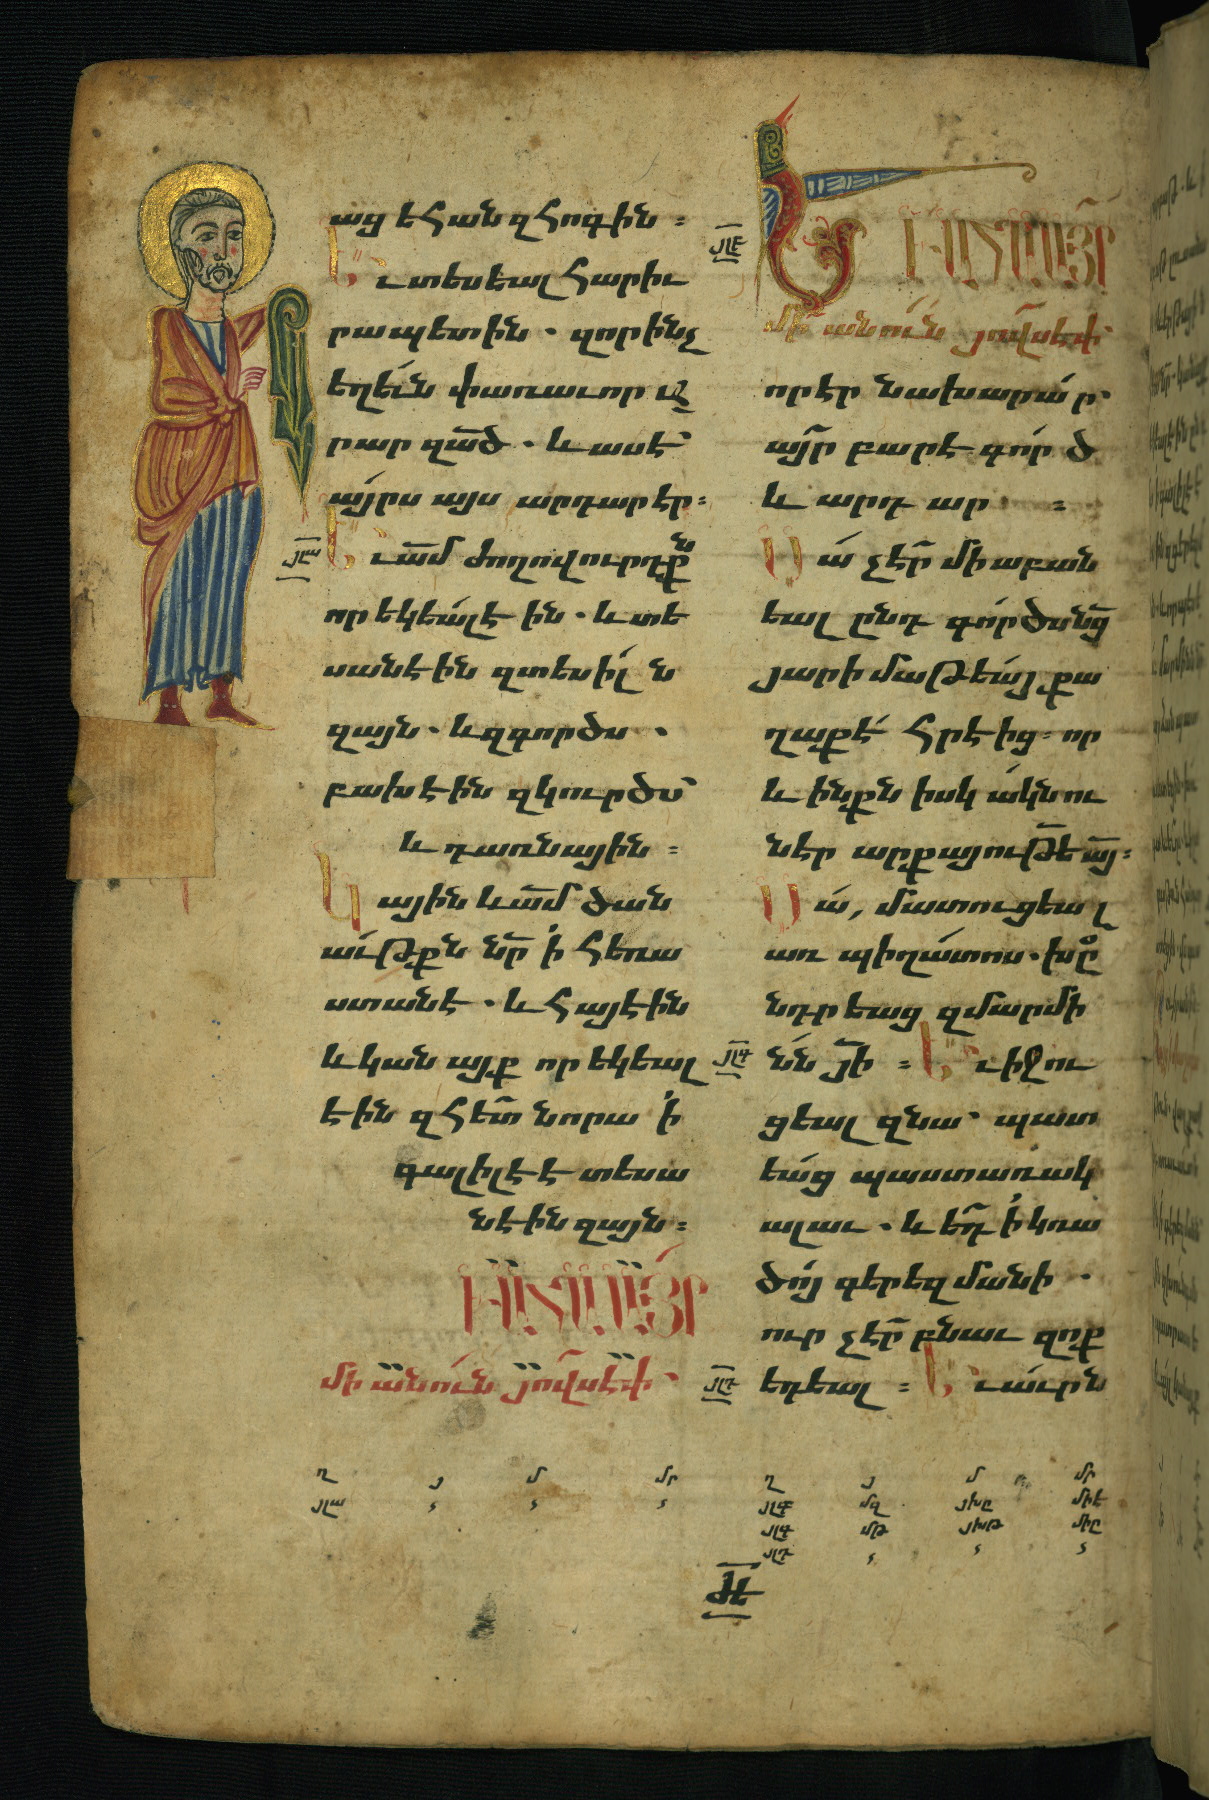 աց եհան զհոգին ։
Եւ տեսեալ հարիւ
րապետին . զորինչ
եղեւն փառաւոր ա՛ռ
րար զա՜ծ . և ասէ՝
այրս այս արդար էր ։
յլա
Եւ ա՜մ ժողովուրդքն
որ եկեալ է ին . և տե
սանէին զտեսիլ ն
զայն . և զգործս .
բախէին զկուրծս՝
և դառնային ։
Կային և ա՜մ ծան
աւթքն նր՜ ի հեռա
ստանէ . և հայէին
և կանայք որ եկեալ
էին զհետ նորա ի
գալիլէէ տեսա
նէին զայն ։
ԱՀԱ ԱՅՐ
մի անուն յովսէփ .
յլբ
ԱՀԱ ԱՅՐ
մի անուն յովսէփ
որ էր նախարար .
այր բարէգործ
և արդար ։
Սա չէր միաբան
եալ ընդ գործս նց՜
յարիմաթեայ քա
ղաքէ հրէից ։ որ
և ինքն իսկ ակն ու
նէր արքայութե ա՜յ ։
Սա, մատուցեալ
առ պիղատոս . խը
նդրեաց զմարմի
յլգ
նն յի՜ ։ Եւ իջու
ցեալ զնա՝ պատ
եաց պաստառակ
ալաւ . և եդ ի կռա
ծոյ գերեզմանի .
ուր չէր բնաւ զոք
յլդ
եդեալ ։ Եւ աւրն
ղ յ մ մր
յլա
ղ յ մ մր
յլբ մզ յխը միէ
յլգ մթ յխթ միը
յլդ
ժէ